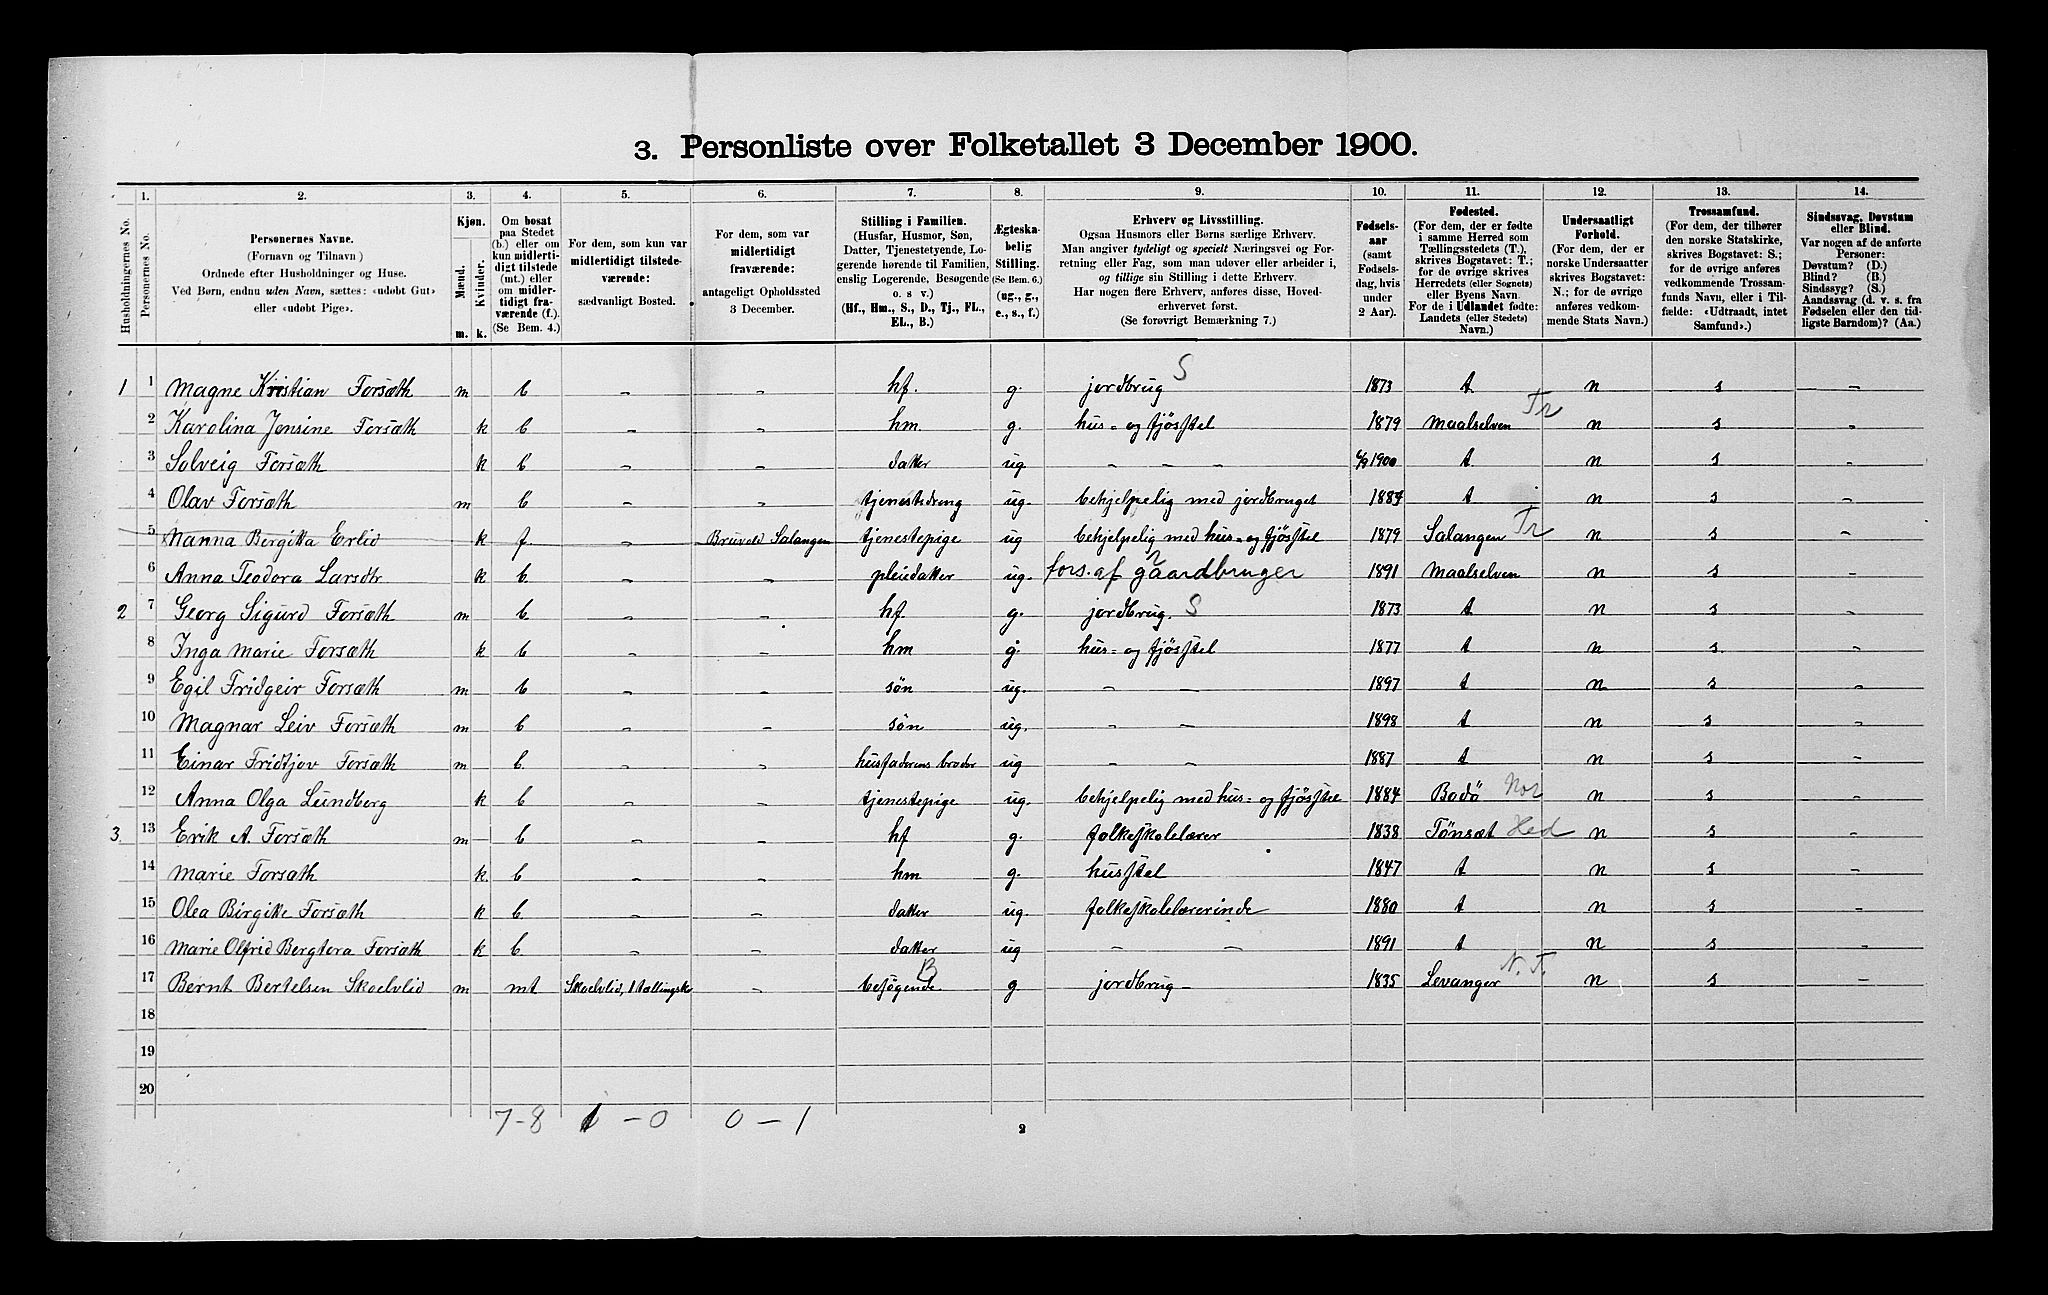 3. Personliste over Folketallet 3 December 1900.
1. 2. 3. 4. 5. 6. 7. 8. 9. 10. 11. 12. 13. 14.
Husholdningernes No.
Personernes No.
Personernes Navne.
(Fornavn og Tilnavn)
Ordnede efter Husholdninger og Huse.
Ved Børn, endnu uden Navn, sættes: «udøbt Gut»
eller «udøbt Pige».
Kjøn.
Mænd.
Kvinder.
m. k.
Om bosat
paa Stedet
(b.) eller om
kun midlerti-
digt tilstede
(mt.) eller
om midler-
tidigt fra-
værende (f.)
(Se Bem. 4.)
For dem, som kun var
midlertidigt tilstede-
værende:
sædvanligt Bosted.
For dem, som var
midlertidigt
fraværende:
antageligt Opholdssted
3 December.
Stilling i Familien.
(Husfar, Husmor, Søn,
Datter, Tjenestetyende, Lo-
gerende hørende til Familien,
enslig Logerende, Besøgende
o. s v.)
(Hf., Hm., S., D., Tj., FL.,
EL., B.)
Ægteska-
belig
Stilling.
(Se Bem. 6.)
(ug., g.,
e., s., f.)
Erhverv og Livsstilling.
Ogsaa Husmors eller Børns særlige Erhverv.
Man angiver tydeligt og specielt Næringsvei og For-
retning eller Fag, som man udøver eller arbeider i,
og tillige sin Stilling i dette Erhverv.
Har nogen flere Erhverv, anføres disse, Hoved-
erhvervet først.
(Se forøvrigt Bemærkning 7.)
Fødsels-
aar
(samt
Fødsels-
dag, hvis
under
2 Aar).
Fødested.
(For dem, der er fødte
i samme Herred som
Tællingsstedets (T.),
skrives Bogstavet: T.;
for de øvrige skrives
Herredets (eller Sognets)
eller Byens Navn.
For de i Udlandet fødte:
Landets (eller Stedets)
Navn.)
Undersaatligt
Forhold.
(For dem, der er
norske Undersaatter
skrives Bogstavet:
N.; for de øvrige
anføres vedkom-
mende Stats Navn.)
Trossamfund.
(For dem, der tilhører
den norske Statskirke,
skrives Bogstavet: S.;
for de øvrige anføres
vedkommende Trossam-
funds Navn, eller i Til-
fælde: «Udtraadt, intet
Samfund».)
Sindssvag, Døvstum
eller Blind.
Var nogen af de anførte
Personer:
Døvstum? (D.)
Blind? (B.)
Sindssyg? (S.)
Aandssvag (d. v. s. fra
Fødselen eller den tid-
ligste Barndom)? (Aa.)
1 1 Magne Kristian Forsæth m b - - hf. g. jordbrug S 1873 t n s -
2 Karolina Jensine Forsæth k b - - hm. g. hus- og fjøsstel 1879 Maalselven Tr n s -
3 Solveig Forsæth k b - - datter ug. - - - 1900 t n s -
4 Olav Forsæth m b - - tjenestedreng ug. behjelpelig med jordbruget 1884 t n s -
5 Nanna Bergitta Erlid k f. - Salangen tjenestepige ug behjelpelig med hus- og fjøsstel 1879 Salangen Tr n s -
6 Anna Teodora Larsdtr k b. - - pleiedatter ug. fors. af gaardbruger 1891 Maalselven n s -
2 7 Georg Sigurd Forsæth m b. - - hf. g. jordbrug. S 1873 t n s -
8 Inga Marie Forsæth k b - - hm g. hus- og fjøsstel 1877 t n s. -
9 Egil Fridgeir Forsæth m b - - søn ug. - - 1897 t n s -
10 Magnar Leiv Forsæth m b - - søn ug. - - 1898 t n s -
11 Einar Fridtjov Forsæth m b. - - husfaderens broder ug - - 1887 t n s -
12 Anna Olga Lundberg k b - - tjenestepige ug. behjelpelig med hus- og fjøsstel 1884 Bodö Nor n s -
3. 13 Erik A. Forsæth m b - - hf g. folkeskolelærer 1838 Tönsæt Hed n s -
14 Marie Forsæth k. b - - hm g. husstel 1847 t n s -
15 Olea Birgitte Forsæth k b - - datter ug. folkeskolelærerinde 1880 t n s -
16 Marie Olfrid Bergtora Forsæth k b. - - datter ug - - 1891 t n s -
17 Bernt Bertelsen Skoelvlid m mt Skoelvlid, 1 tællingskr - besögende. B g jordbrug - 1835 Levanger N. T. n s -
18
19
20
7-8 1-0 0-1
2